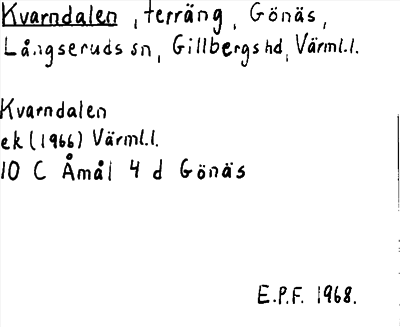 Kvarndalen, terräng, Gönäs,
Långseruds sn, Gillbergs hd, Värml.l.
Kvarndalen
ek (1966) Värml.l.
10 C Åmål 4 d Gönäs
E.P.F. 1968.